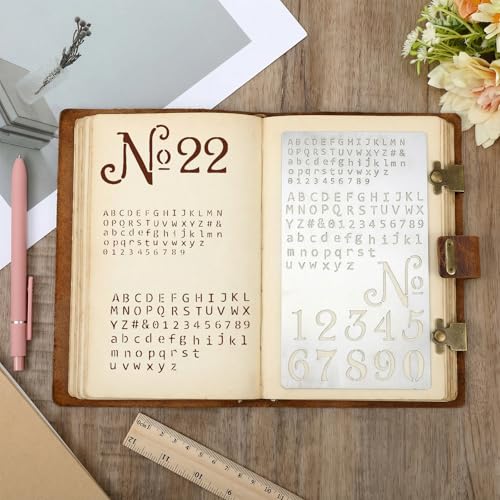 № 22
ABCDEFGHIJKLMN
OPQRSTUVWXYZ#&
abcdefghijklmn
opqrstuvwxyz
0123456789
ABCDEFGHIJKL
MNOPQRSTUVWX
YZ#&0123456789
abcdefghijkl
mnopqrst
uvwxyz
ABCDEFGHIJKLMN
OPQRSTUVWXYZ#&
abcdefghijklmn
opqrstuvwxyz
0123456789
ABCDEFGHIJKL
MNOPQRSTUVWX
YZ#&0123456789
abcdefghijkl
mnopqrst
uvwxyz
№
12345
67890